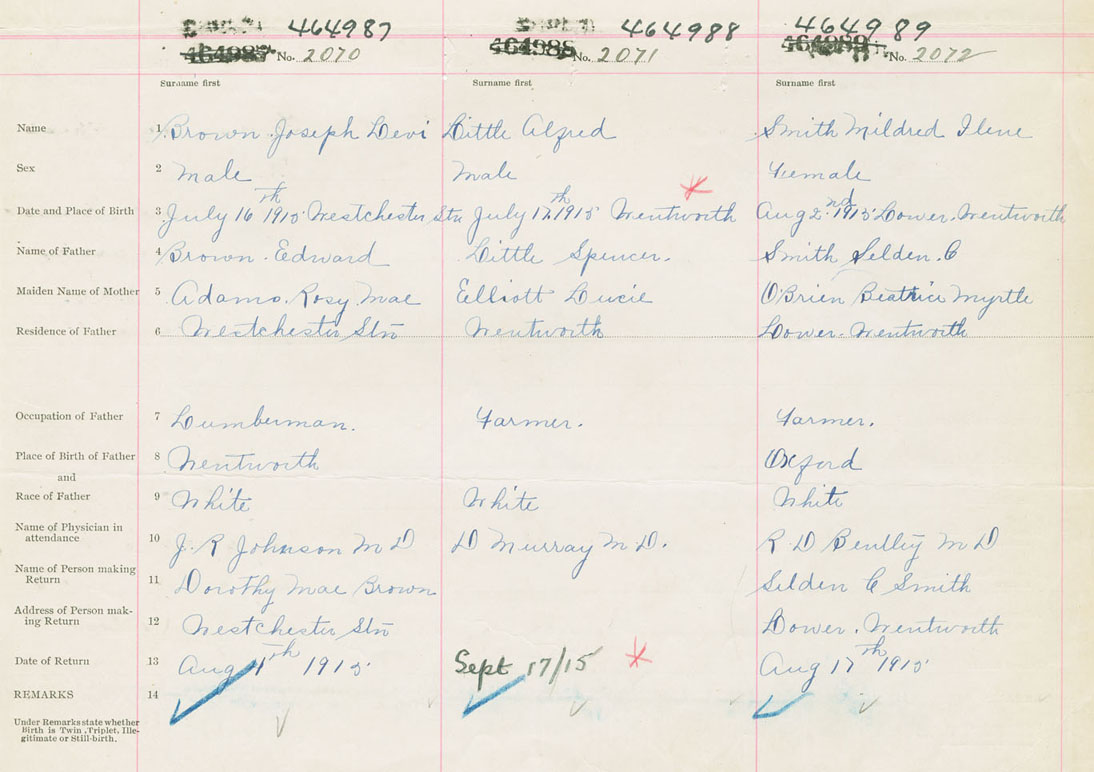 464987 464988 464989
464987 No. 2070 464988 No. 2071 464989 No. 2072
Surname first Surname first Surname first
Name 1 Brown Joseph Levi Little Alfred Smith Mildred Ilene
Sex 2 Male Male Female
Date and Place of Birth 3 July 16th 1915 Westchester Stn July 17th 1915 Wentworth Aug 2nd 1915 Lower Wentworth
Name of Father 4 Brown Edward Little Spencer. Smith Selden. C
Maiden Name of Mother 5 Adams, Rosy Mae Eelliott Lucie O'Brien Beatrice Myrtle
Residence of Father 6 Westchester Stn Wentworth Lower Wentworth
Occupation of Father 7 Lumberman. Farmer. Farmer.
Place of Birth of Father 8 Wentworth Oxford
and
Race of Father 9 White White White
Name of Physician in
attendance 10 J. R Johnson M D D Murray M D. R. D Bentley M D
Name of Person making
Return 11 Dorothy Mae Brown Selden C Smith
Address of Person mak-
ing Return 12 Westchester Stn Lower. Wentworth
Date of Return 13 Aug th 1915 Sept 17/15 Aug 17th 1915
REMARKS 14
Under Remarks state whether
Birth is Twin, Triplet, Ille-
gitimate or Still-birth.